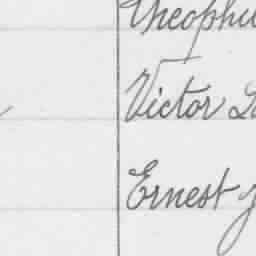 Theophil
Victor
Ernest